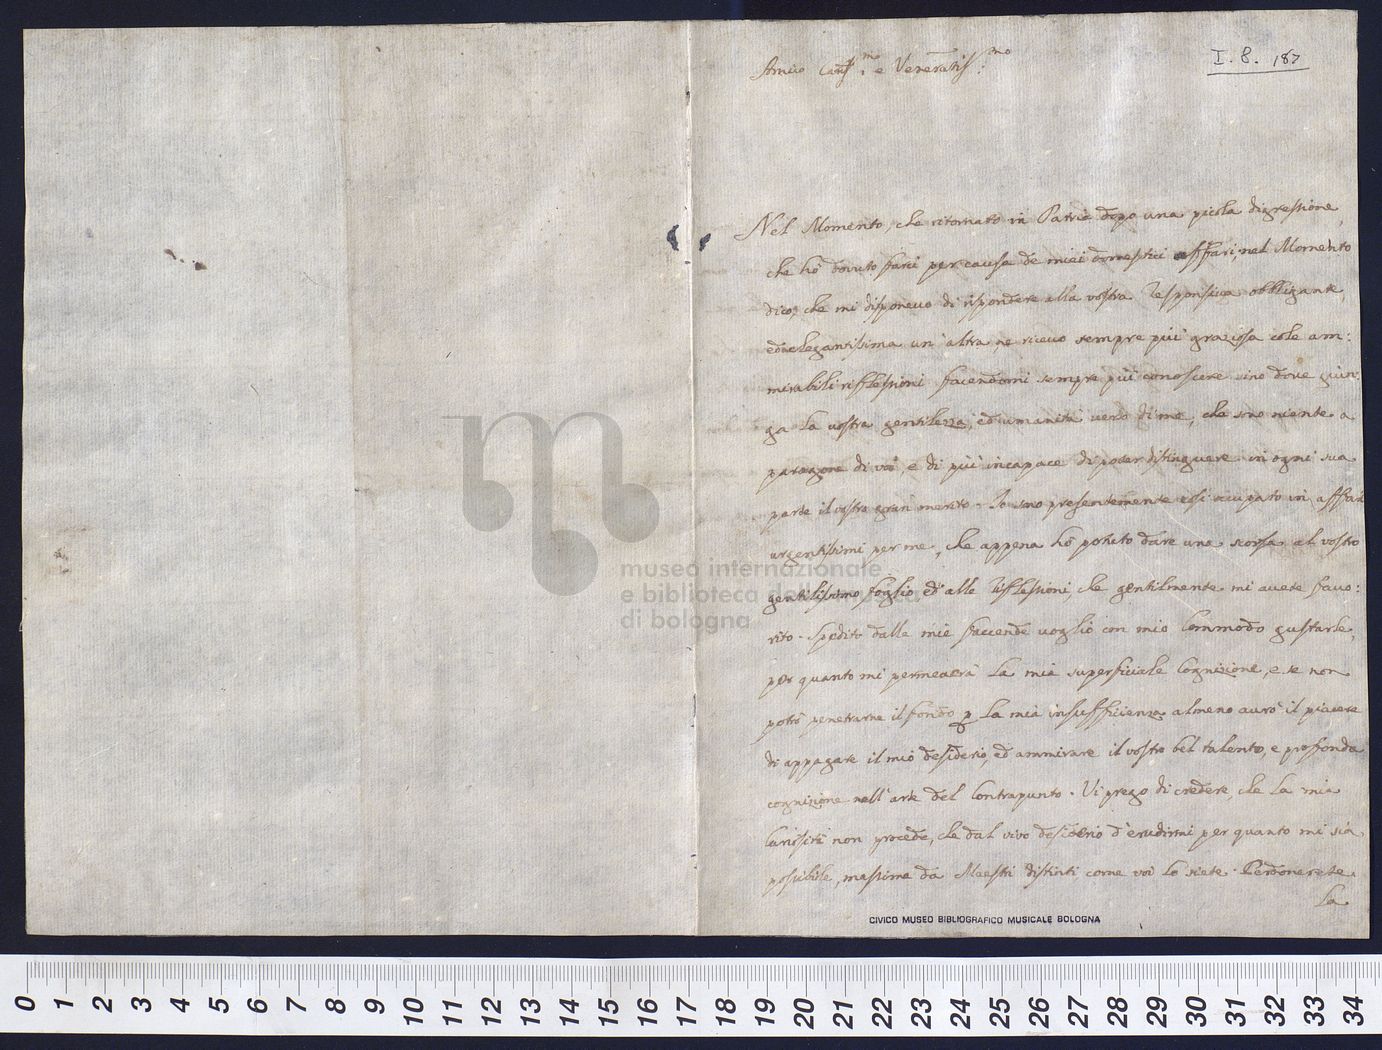 I. 8. 187
Amico Cariss:mo e Veneratiss:mo
Nel Momento, che ritornato in Patria dopo una picola digressione,
che hò dovuto farci per causa de miei domestici affari, nel Momento
dico, che mi disponevo di rispondere alla vostra responsiva obbligante,
ed elegantissima un' altra ne ricevo sempre più graziosa cole am:
mirabili riflessioni facendomi sempre più conoscere sino dove giun:
ga la vostra gentilezza, ed umanità verso di me, che sono niente a
paragone di voi, e di più incapace di poter distinguere in ogni sua
parte il vostro gran merito. Io sono presentemente così occupato in affari
urgentissimi per me, che appena hò potuto dare una scorsa al vostro
gentilissimo foglio, ed alle riflessioni, che gentilmente mi avete favo:
rito. Spedito dalle mie faccende voglio con mio commodo gustarle,
per quanto mi permeterà la mia superficiale Cognizione, e se non
potrò penetrarne il fondo p la mia insufficienza almeno avrò il piacere
di appagare il mio desiderio, ed ammirare il vostro bel talento, e profonda
cognizione nell' arte del Contrapunto. Vi prego di credere, che la mia
Curiosità non procede, che dal vivo desiderio d'erudirmi per quanto mi sia
possibile, massime da Maestri distinti come voi lo siete. Perdonerete
la
CIVICO MUSEO BIBLIOGRAFICO MUSICALE BOLOGNA
museo internazionale
e biblioteca della musica
di bologna
0 1 2 3 4 5 6 7 8 9 10 11 12 13 14 15 16 17 18 19 20 21 22 23 24 25 26 27 28 29 30 31 32 33 34